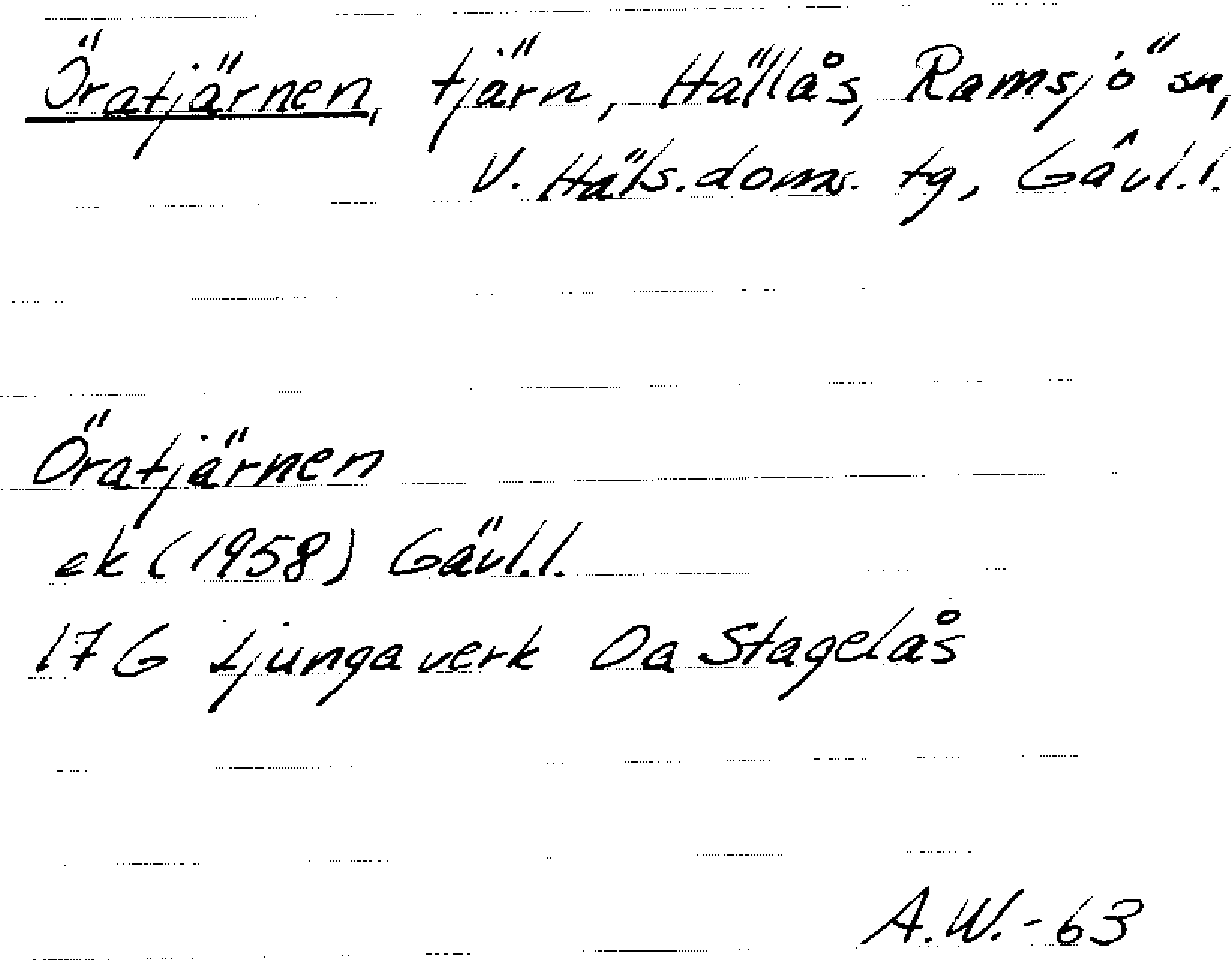 Öratjärnen, tjärn, Hällås, Ramsjö sn,
V. Häls. doms. tg, Gävl.l.
Öratjärnen
ek (1958) Gävl.l.
17 G Ljungaverk Oa Stagelås
A.W.-63